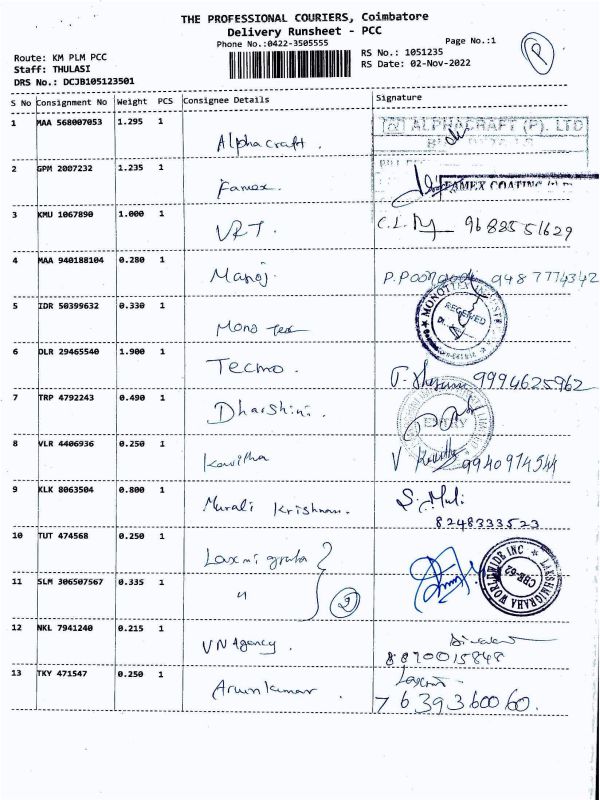 THE PROFESSIONAL COURIERS, Coimbatore
Delivery Runsheet - PCC
Phone No.:0422-3505555
Page No.:1
P
Route: KM PLM PCC
RS No.: 1051235
Staff: THULASI
RS Date: 02-Nov-2022
DRS No.: DCJB105123501
S No Consignment No Weight PCS Consignee Details Signature
1 MAA 568007053 1.295 1 Alphacraft . ALPHACRAFT (P). LTD
2 GPM 2007232 1.235 1 Famex. FAMEX COATING
3 KMU 1067890 1.000 1 VRT. 9688551629
4 MAA 940188104 0.280 1 Manoj. 9487774342
5 IDR 50399632 0.330 1 Mono tex RECEIVED
6 DLR 29465540 1.900 1 Tecmo. 9994625962
7 TRP 4792243 0.490 1 Dharshini. ENTRY
8 VLR 4406936 0.250 1 Kavitha V Kavitha 9940974544
9 KLK 8063504 0.800 1 Murali Krishnan. S. Muli
8248333523
10 TUT 474568 0.250 1 Laxmi graha LAKSHMIGRAHA WORLDWIDE INC CBE-62
11 SLM 306507567 0.335 1 " 2
12 NKL 7941240 0.215 1 VN Agency.
8870015848
13 TKY 471547 0.250 1 Arunkumar . Laxmi
7639360060.